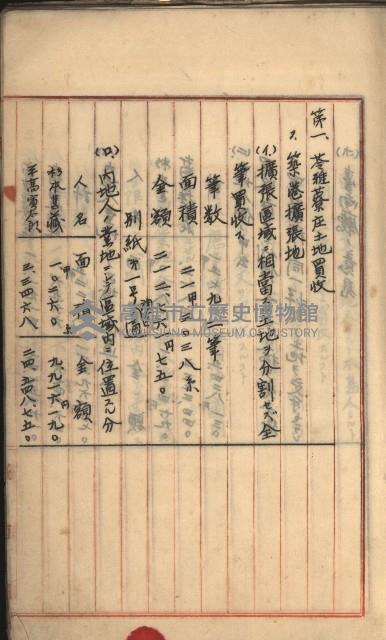 第一、苓雅寮庄土地買收
1. 築港擴張地
(イ)擴張區域ニ相當スル土地ヲ分割セズ全
筆買收ス
筆數 七九筆
面積 二一甲二三八糸
金額 二一二、二六〇円七五〇
別紙第一号ノ通
(ロ)内地人ノ業地ニシテ區域内ニ位置スル分
人名 面積 金額
杉本 一、〇二六〇 九、九二六円一九〇
三、三四六八 二四、五四八、七五〇
高雄市立歷史博物館
KAOHSIUNG MUSEUM OF HISTORY